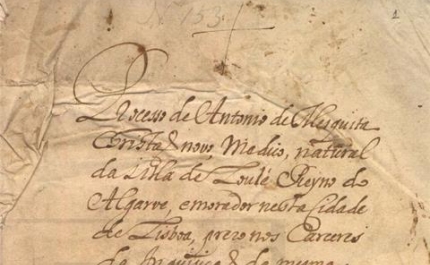 N. 153.
1
Processo de Antonio de Mesquita
Cristão novo, Medico, natural
da Villa de Loulé Reyno do
Algarve, e morador nesta Cidade
de Lisboa, prezo nos Carceres
da